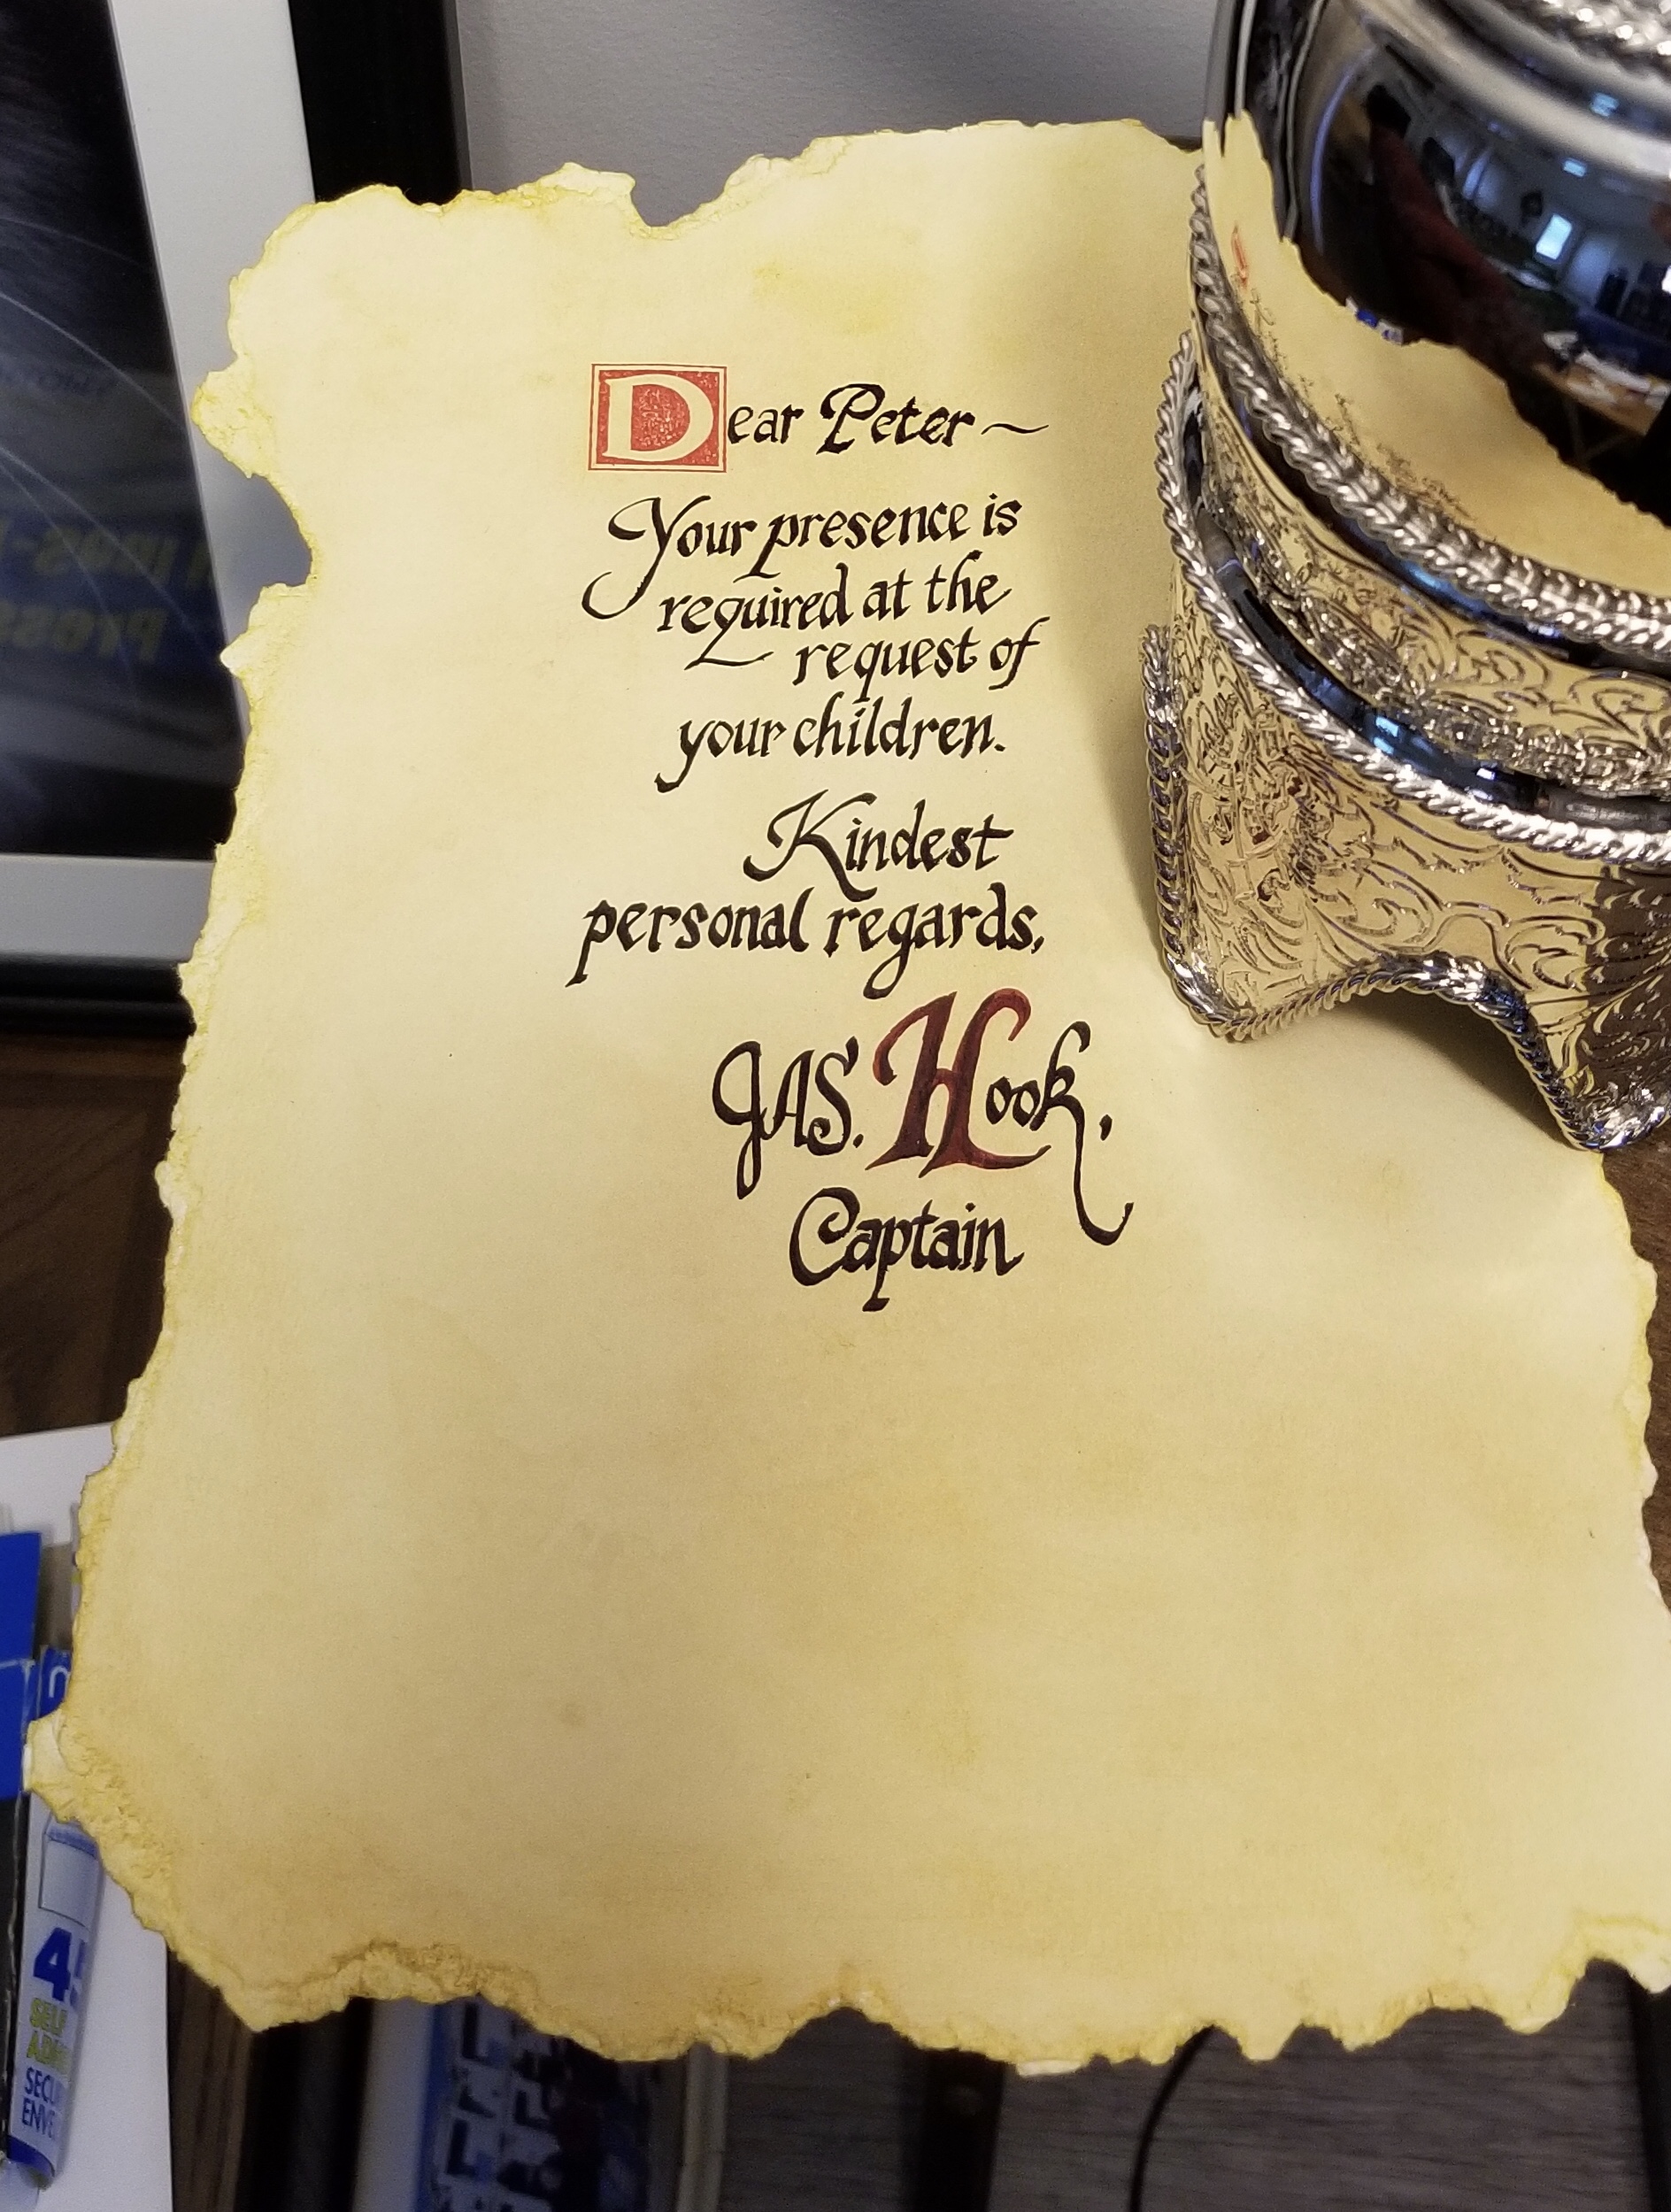 Dear Peter ~
Your presence is
required at the
request of
your children.
Kindest
personal regards,
JAS. Hook,
Captain
SELF